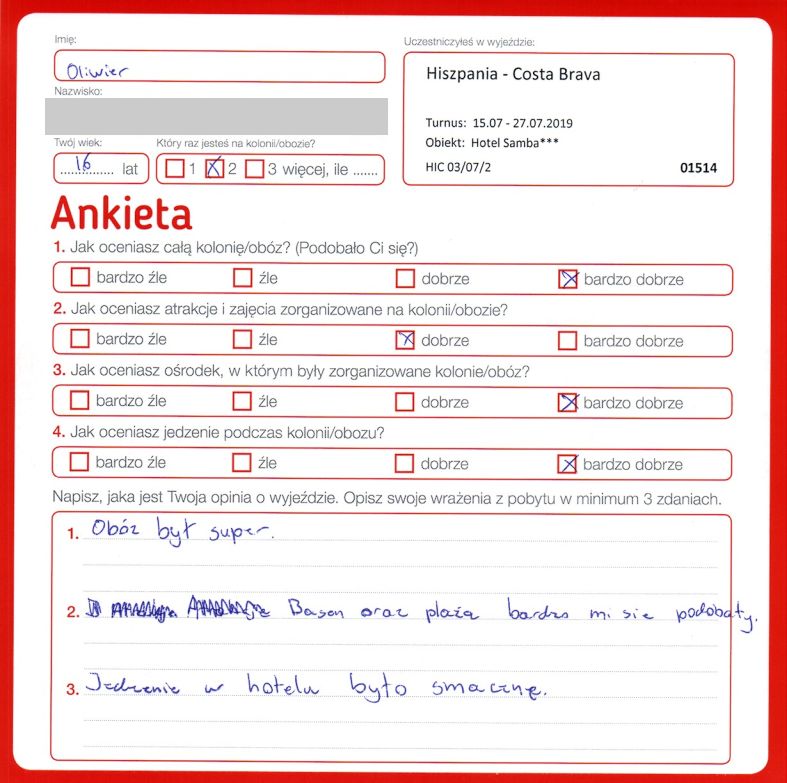 Imię:
Oliwier
Nazwisko:
Twój wiek:
16 lat
Który raz jesteś na kolonii/obozie?
1 2 3 więcej, ile .......
Uczestniczyłeś w wyjeździe:
Hiszpania - Costa Brava
Turnus: 15.07 - 27.07.2019
Obiekt: Hotel Samba***
HIC 03/07/2 01514
Ankieta
1. Jak oceniasz całą kolonię/obóz? (Podobało Ci się?)
bardzo źle źle dobrze bardzo dobrze
2. Jak oceniasz atrakcje i zajęcia zorganizowane na kolonii/obozie?
bardzo źle źle dobrze bardzo dobrze
3. Jak oceniasz ośrodek, w którym były zorganizowane kolonie/obóz?
bardzo źle źle dobrze bardzo dobrze
4. Jak oceniasz jedzenie podczas kolonii/obozu?
bardzo źle źle dobrze bardzo dobrze
Napisz, jaka jest Twoja opinia o wyjeździe. Opisz swoje wrażenia z pobytu w minimum 3 zdaniach.
1. Obóz był super.
2. Basen oraz plażą bardzo mi sie podobały.
3. Jedzenie w hotelu było smacznę.